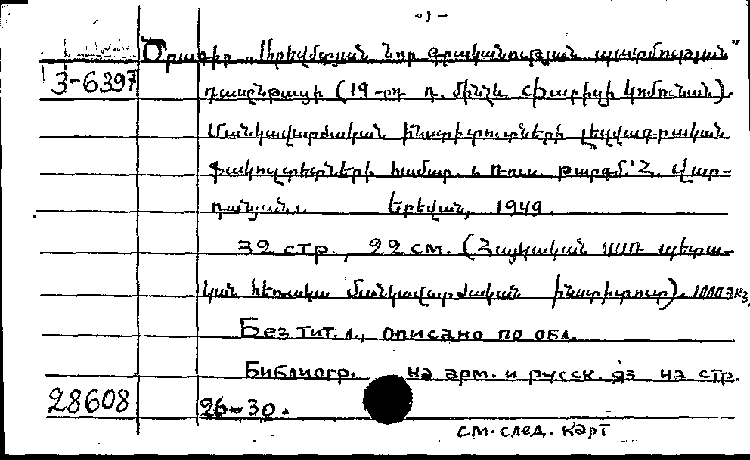 -1-
Ծրագիր „Արևմտյան նոր գրականության պատմության”
3-6397
դասընթացի (19-րդ դ. մինչև Փարիզի կոմունան).
Մանկավարժական ինստիտուտների լեզվագրական
ֆակուլտետների համար. Ռուս. թարգմ.՝ Հ. Վար-
դանյան. Երեվան, 1949.
32 стр., 22 см. (Հայկական ՍՍՌ պետա-
կան հեռակա մանկավարժական ինստիտուտ). 1000 экз,
Без тит. л., описано по обл.
Библиогр. на арм. и русск. яз на стр.
28608
26-30.
см. след. карт